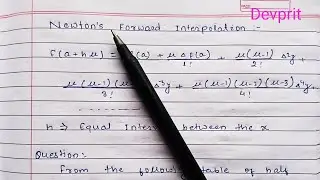 Devprit
Newton's Forward Interpolation :-
f(a+hu) = f(a) + uΔf(a)/1! + u(u-1)/2! Δ²y +
u(u-1)(u- Δ³y u(u-1)(u-2)(u-3) Δ⁴y +
3! 4!
h → Equal Inter between the x
Question:-
From the follow table of half